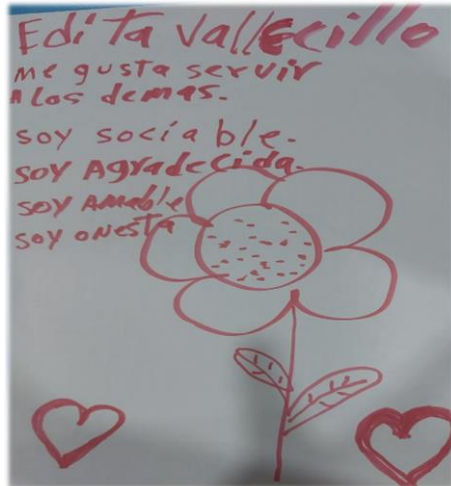 Edita Vallecillo
me gusta servir
A los demas.
soy sociable.
soy Agradecida.
soy Amable
soy onesta